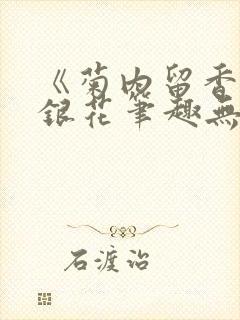 《菊内留香
銀花筆趣無
石渡治